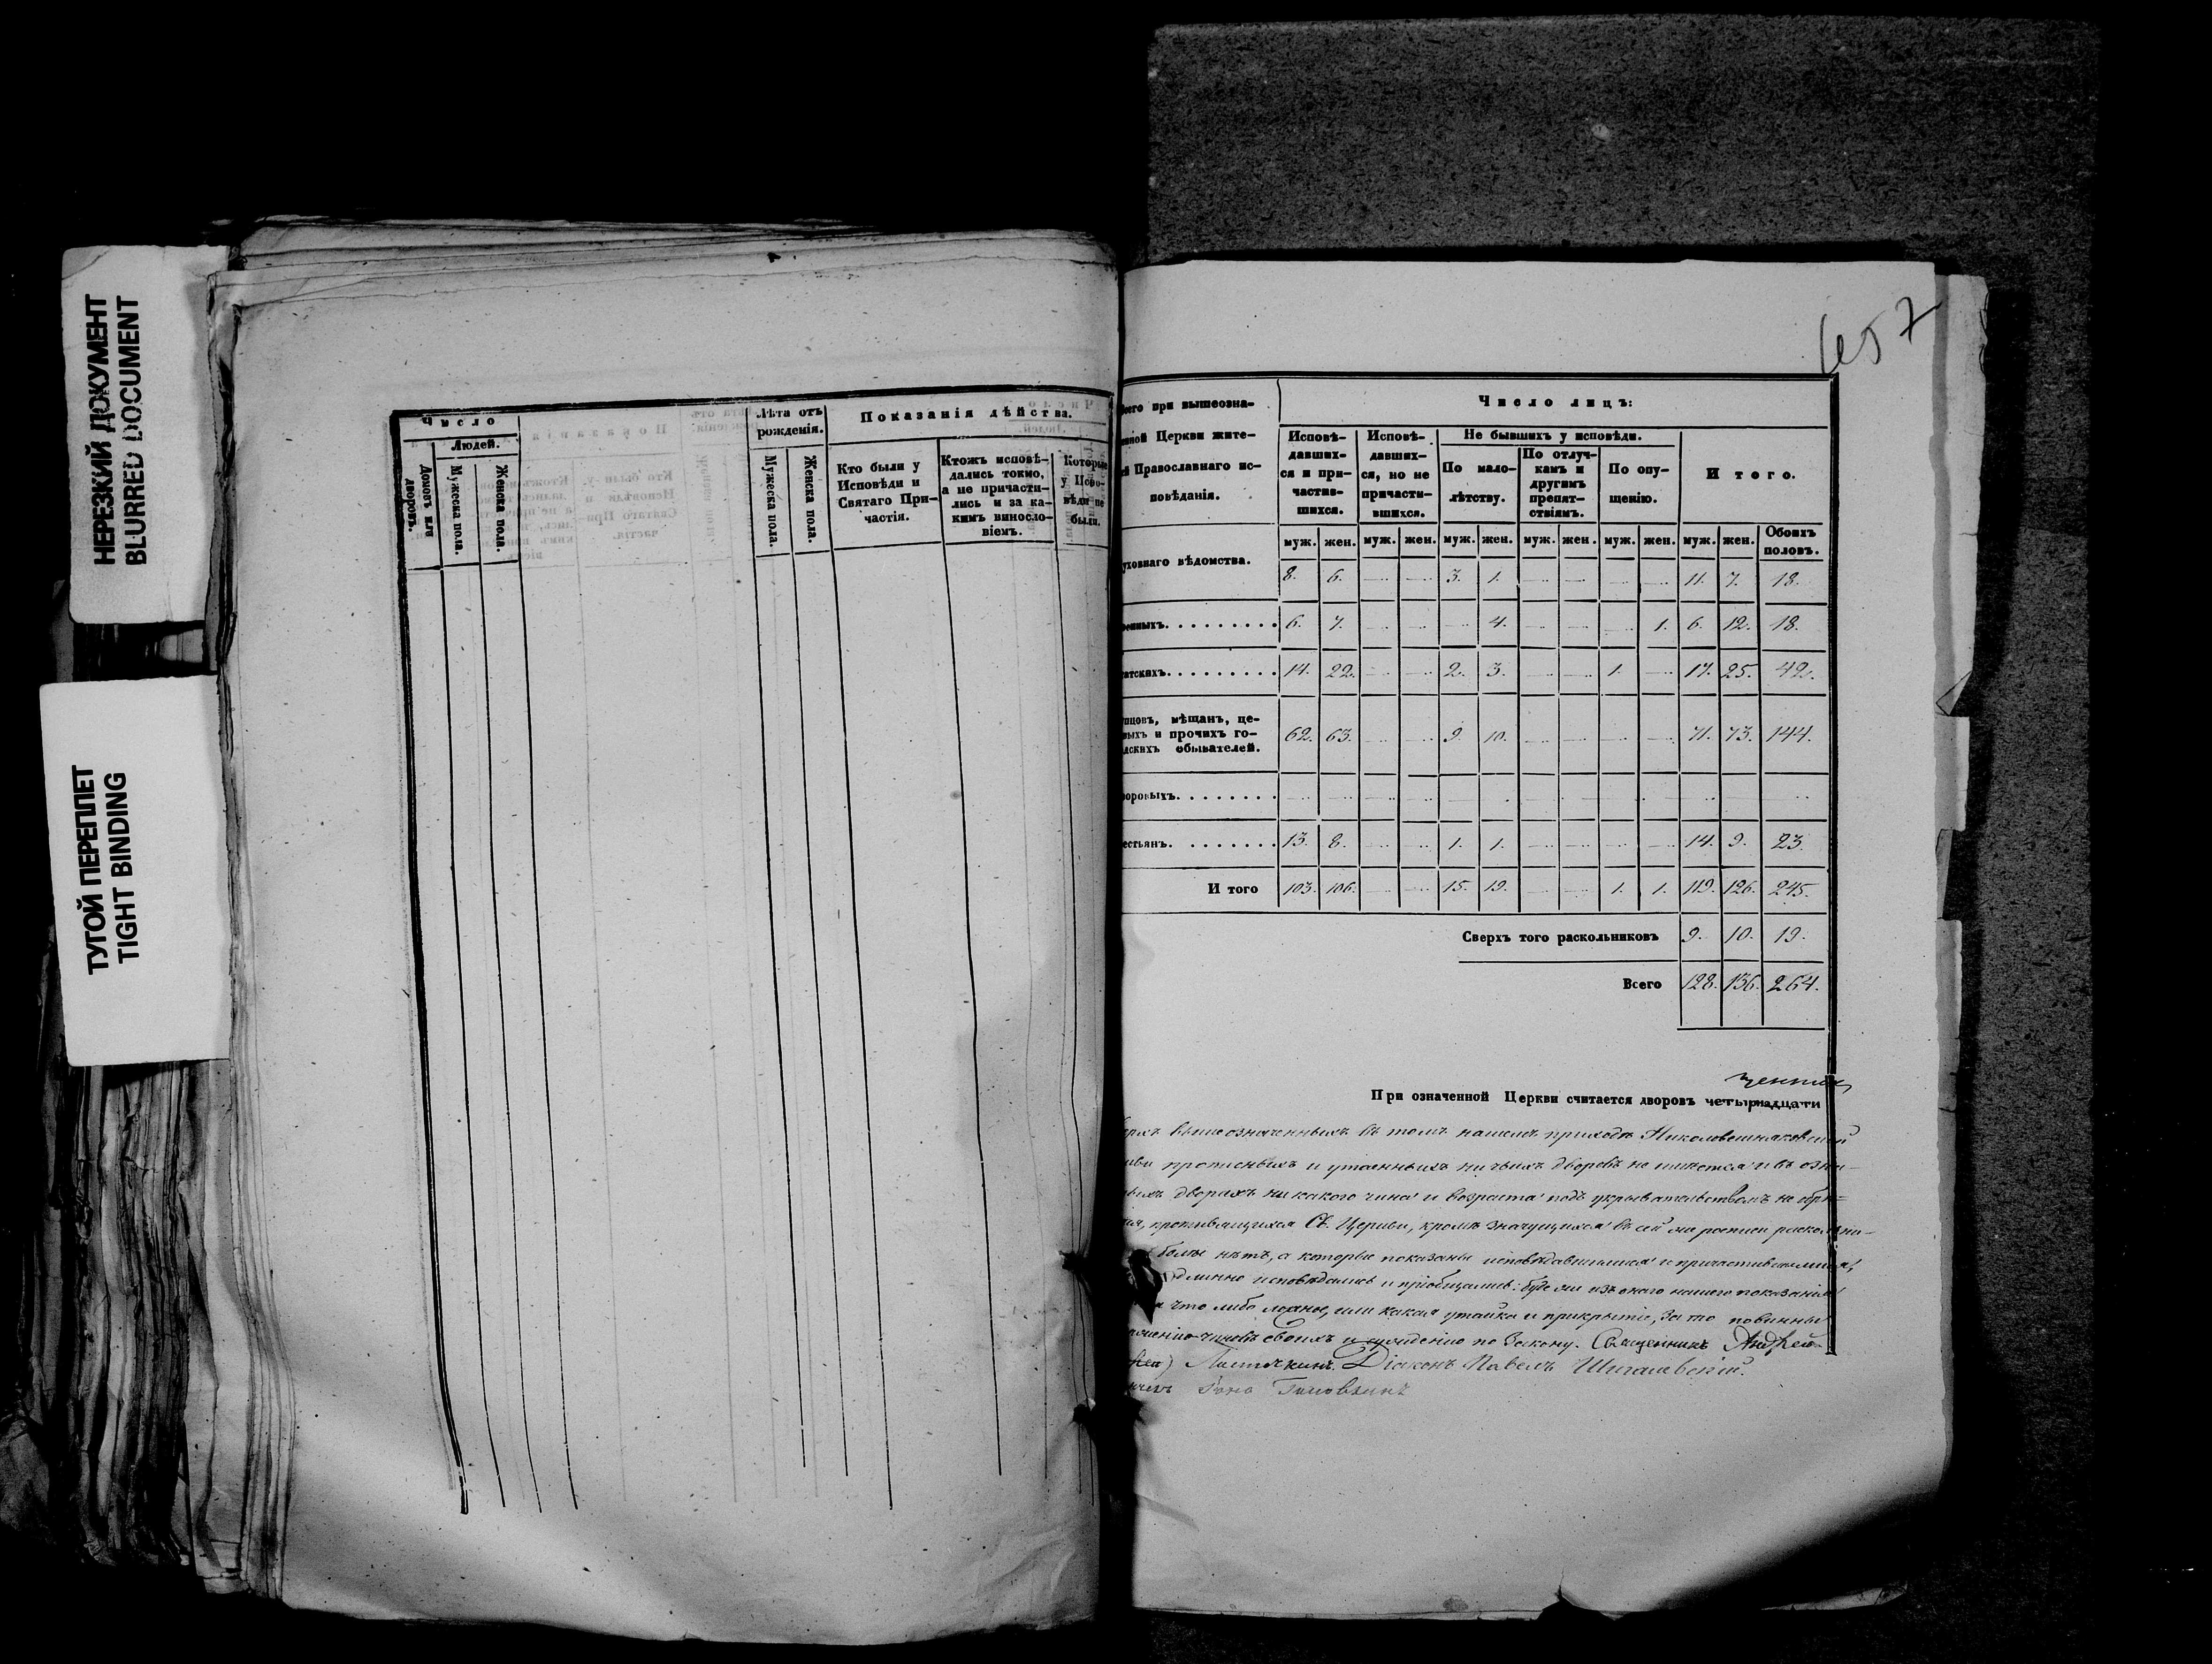 НЕРЕЗКИЙ ДОКУМЕНТ
BLURRED DOCUMENT
ТУГОЙ ПЕРЕПЛЕТ
TIGHT BINDING
Число
Людей.
Домовъ или дворовъ.
Мужеска пола.
Женска пола.
Лѣта отъ рожденія.
Мужеска пола.
Женска пола.
Показанія дѣйства.
Кто были у Исповѣди и Святаго Причастія.
Ктожъ исповѣдались токмо, а не причастились и за какимъ винословіемъ.
Которые у Испо-
вѣди не
были.
657
при вышеозна-
Церкви жите-
Православнаго ис-
повѣданія.
Число лицъ:
Исповѣ-
давших-
ся и при-
частив-
шихся.
Исповѣ-
давших-
ся, но не
причасти-
вшихся.
Не бывшихъ у исповѣди.
По мало-
лѣтству.
По отлуч-
камъ и
другимъ
препят-
ствіямъ.
По опу-
щенію.
Итого.
муж. жен. муж. жен. муж. жен. муж. жен. муж. жен. муж. жен. Обоихъ половъ.
уховнаго вѣдомства. 8. 6. — — 3. 1. — — — — 11. 7. 18.
енныхъ. 6. 7. — — — 4. — — — 1. 6. 12. 18.
атскихъ. 14. 22. — — 2. 3. — — 1. — 17. 25. 42.
пцовъ, мѣщанъ, це-
выхъ и прочихъ го-
дскихъ обывателей. 62. 63. — — 9. 10. — — — — 71. 73. 144.
воровыхъ.
естьянъ. 13. 8. — — 1. 1. — — — — 14. 9. 23.
И того 103. 106. — — 15. 19. — — 1. 1. 119. 126. 245.
Сверхъ того раскольниковъ 9. 10. 19.
Всего 128. 136. 264.
При означенной Церкви считается дворовъ четырнадцати
вышеозначенныхъ въ томъ нашемъ приходѣ
прописныхъ и утаенныхъ ничьихъ дворовъ не имѣется и въ озна-
дворахъ никакого чина и возраста подъ укрывательствомъ не обрѣ=
противящихся Св. Церкви, кромѣ значущихся въ сей же росписи расколни-
болѣе нѣтъ, а которые показаны исповѣдавшимися и причастившимися,
исповѣдались и пріобщались: буде же изъ онаго нашего показанія
что либо ложное, или какая утайка и прикрытіе, за то повинны
чиновъ своихъ и сужденію по Закону. Священникъ Андрей
Діаконъ Павелъ